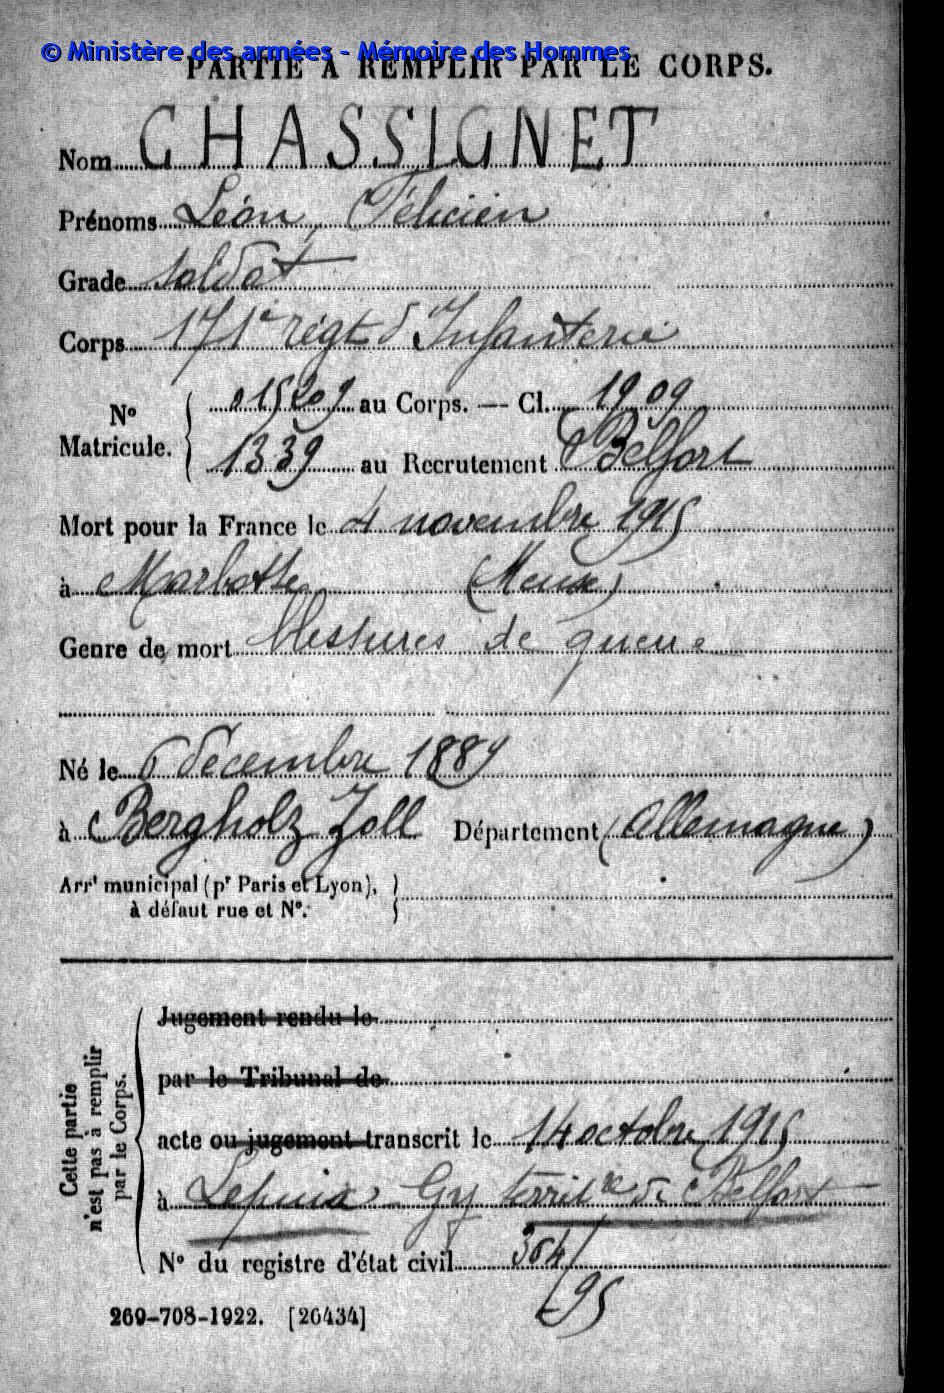 © Ministère des armées - Mémoire des Hommes
PARTIE À REMPLIR PAR LE CORPS.
Nom CHASSIGNET
Prénoms Léon, Félicien
Grade soldat
Corps 171e régt d'Infanterie
N° Matricule. { 015209 au Corps. — Cl. 1909
1339 au Recrutement Belfort
Mort pour la France le 4 novembre 1915
à Marbotte (Meuse)
Genre de mort blessures de guerre
Né le 6 décembre 1889
à Bergholz Zell Département (Allemagne)
Arrt municipal (pr Paris et Lyon), }
à défaut rue et N°.
Cette partie n'est pas à remplir par le Corps.
Jugement rendu le
par le Tribunal de
acte ou jugement transcrit le 14 octobre 1915
à Lepuix Gy territre de Belfort
N° du registre d'état civil 364/
95
269-708-1922. [26434]